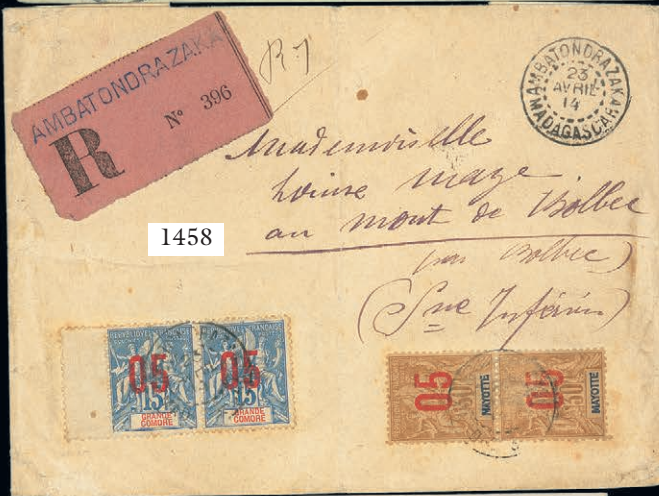 AMBATONDRAZAKA
R
N° 396
R 1
AMBATONDRAZAKA
23
AVRIL
14
MADAGASCAR
Mademoiselle
Louise Maze
au mont de Bolbec
par Bolbec)
(Sne Inférie)
1458
05 05
15 15
GRANDE COMORE GRANDE COMORE
05 05
30 30
MAYOTTE MAYOTTE